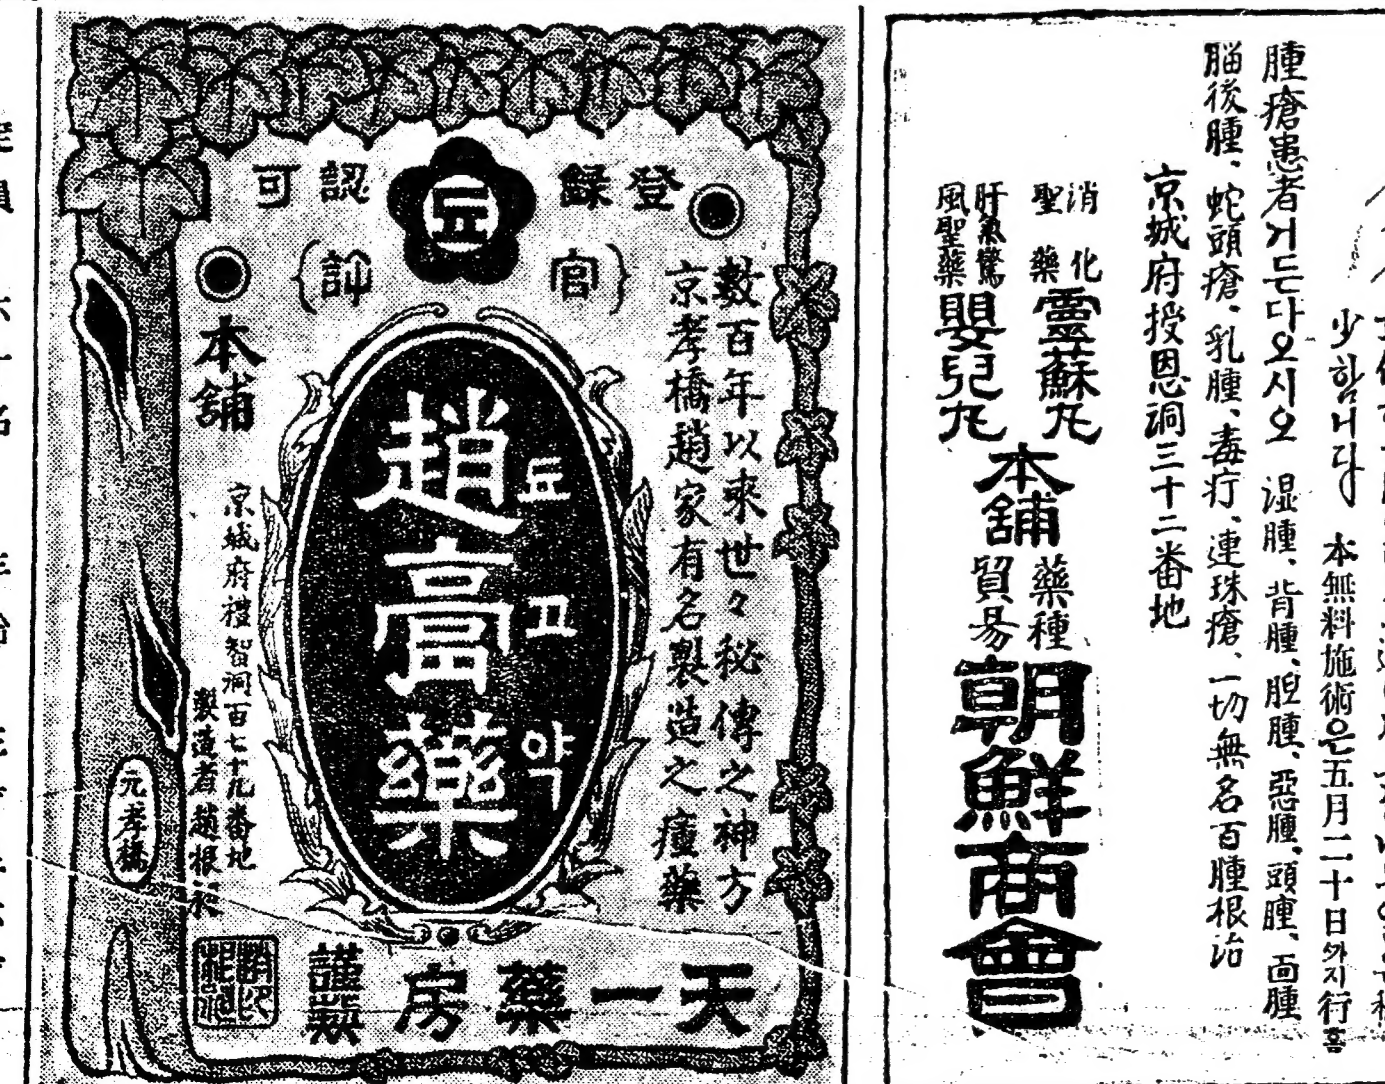 少함니다 本無料施術은五月二十日外지行홈
腫瘡患者거든다오시오 湿腫、背腫、腉腫、惡腫、頭腫、面腫
腦後腫、蛇頭瘡、乳腫、毒疔、連珠瘡、一切無名百腫根治
京城府授恩洞三十二番地
消化
聖藥
靈蘇丸
肝氣驚
風聖藥
嬰兒丸
本舖
藥種
貿易
朝鮮商會
登錄
認可
됴
官
許
數百年以來世々秘傳之神方
京孝橋趙家有名製造之瘇藥
됴고약
趙膏藥
本舖
京城府禮智洞百七十九番地
製造者趙根昶
元孝橋
天一藥房
謹製